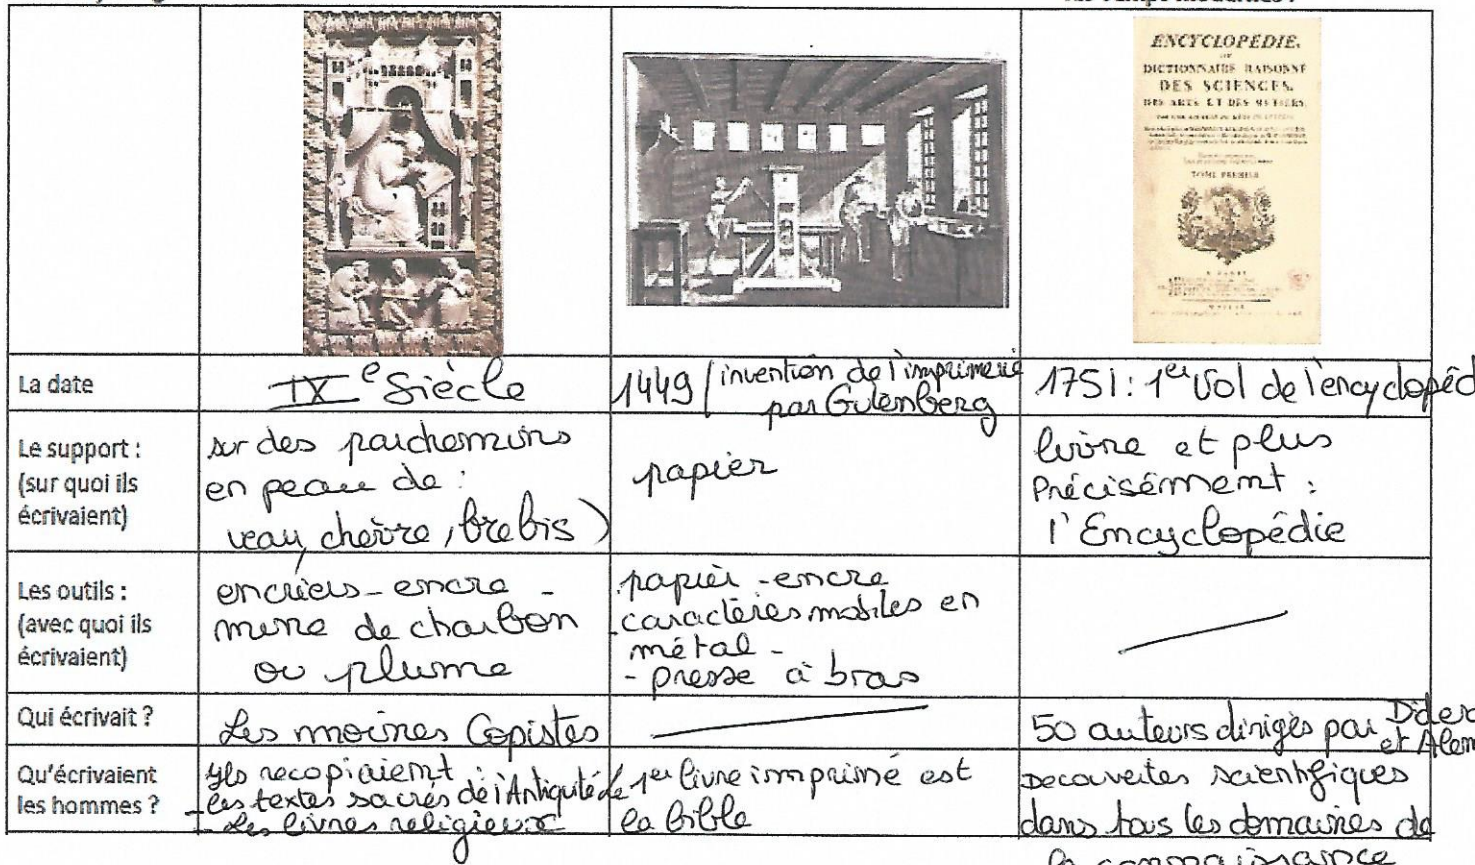 ENCYCLOPÉDIE,
DICTIONNAIRE RAISONNÉ
DES SCIENCES,
DES ARTS ET DES MÉTIERS,
TOME PREMIER
La date
IXe Siècle
1449 / invention de l'imprimerie
par Gutenberg
1751 : 1er Vol de l'encyclopéd
Le support :
(sur quoi ils
écrivaient)
sur des parchemins
en peau de :
veau, chèvre, brebis)
papier
livre et plus
Précisémment :
l'Encyclopédie
Les outils :
(avec quoi ils
écrivaient)
encriers - encre -
mine de charbon
ou plume
papier - encre
- caractères mobiles en
métal -
- presse à bras
Qui écrivait ?
Les moines Copistes
50 auteurs dirigés par Dider
et Alem
Qu'écrivaient
les hommes ?
Ils recopiaient :
- les textes sacrés de l'Antiquité
- Les livres religieux
le 1er livre imprimé est
la bible
Decouvertes scientifiques
dans tous les domaines de
la connaissance